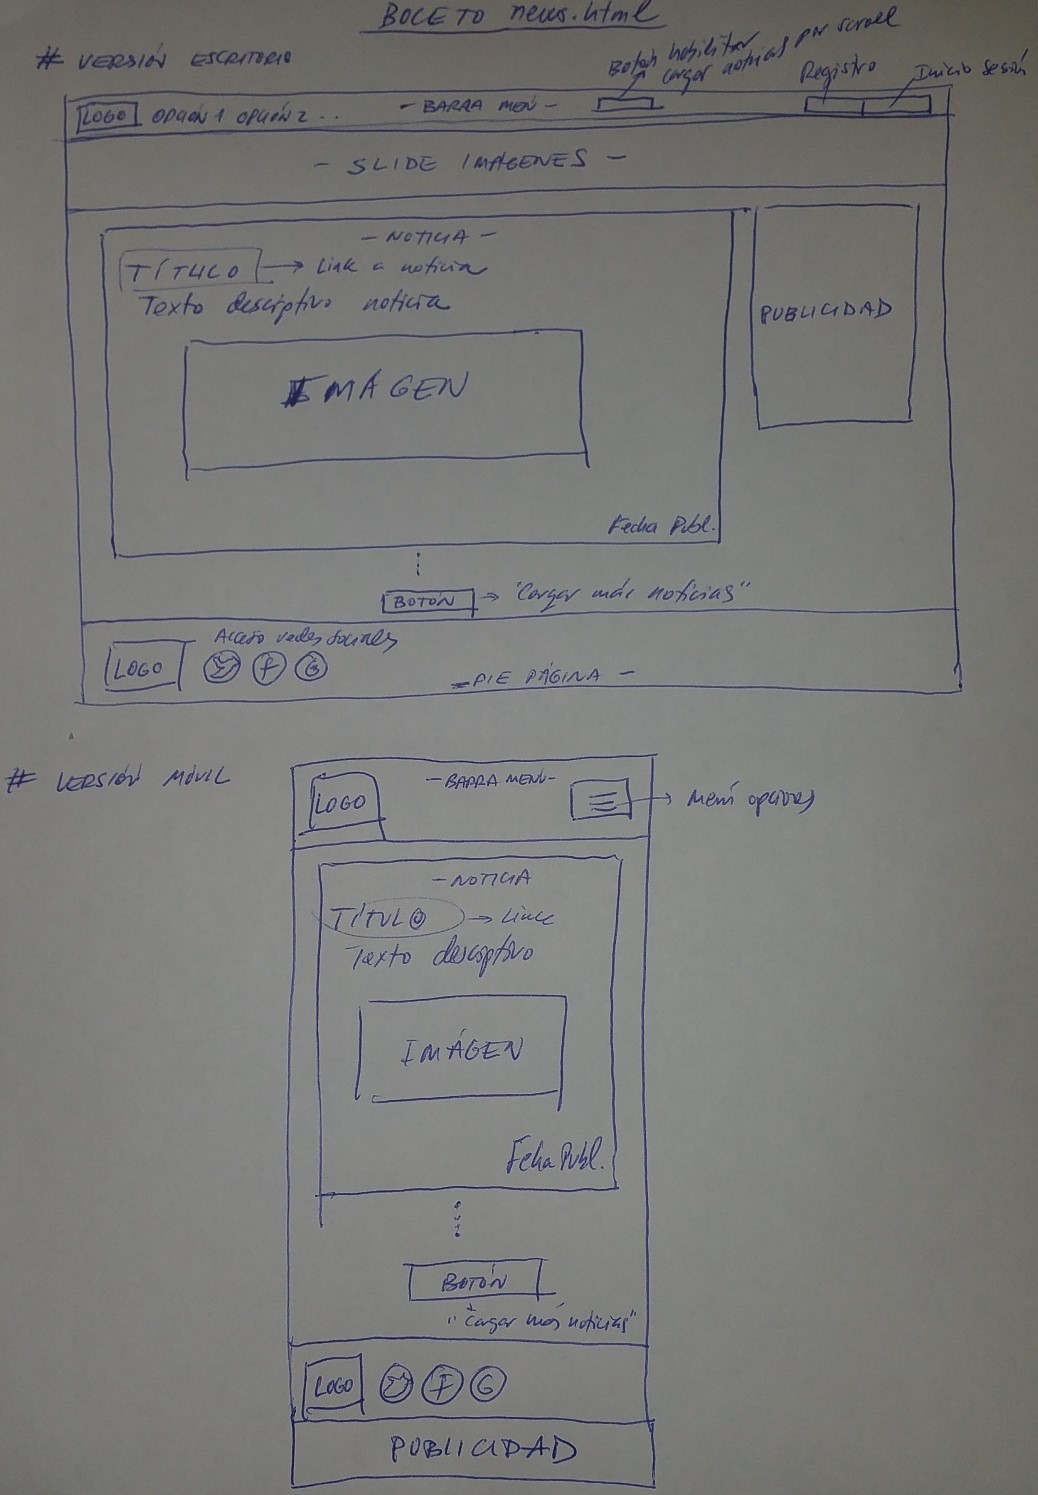 BOCETO news.html
# VERSIÓN ESCRITORIO
Botón habilitar
cargar noticias por scroll
Registro
Inicio sesión
LOGO OPCIÓN 1 OPCIÓN 2 ...
- BARRA MENÚ -
- SLIDE IMÁGENES -
- NOTICIA -
TÍTULO → Link a noticia
Texto descriptivo noticia
IMÁGEN
Fecha Publ.
PUBLICIDAD
BOTÓN → "Cargar más noticias"
Acceso redes sociales
LOGO f G
- PIE PÁGINA -
# VERSIÓN MÓVIL
LOGO
- BARRA MENÚ -
→ Menú opciones
- NOTICIA
TÍTULO → Link
Texto descriptivo
IMÁGEN
Fecha Publ.
BOTÓN
"Cargar más noticias"
LOGO f G
PUBLICIDAD